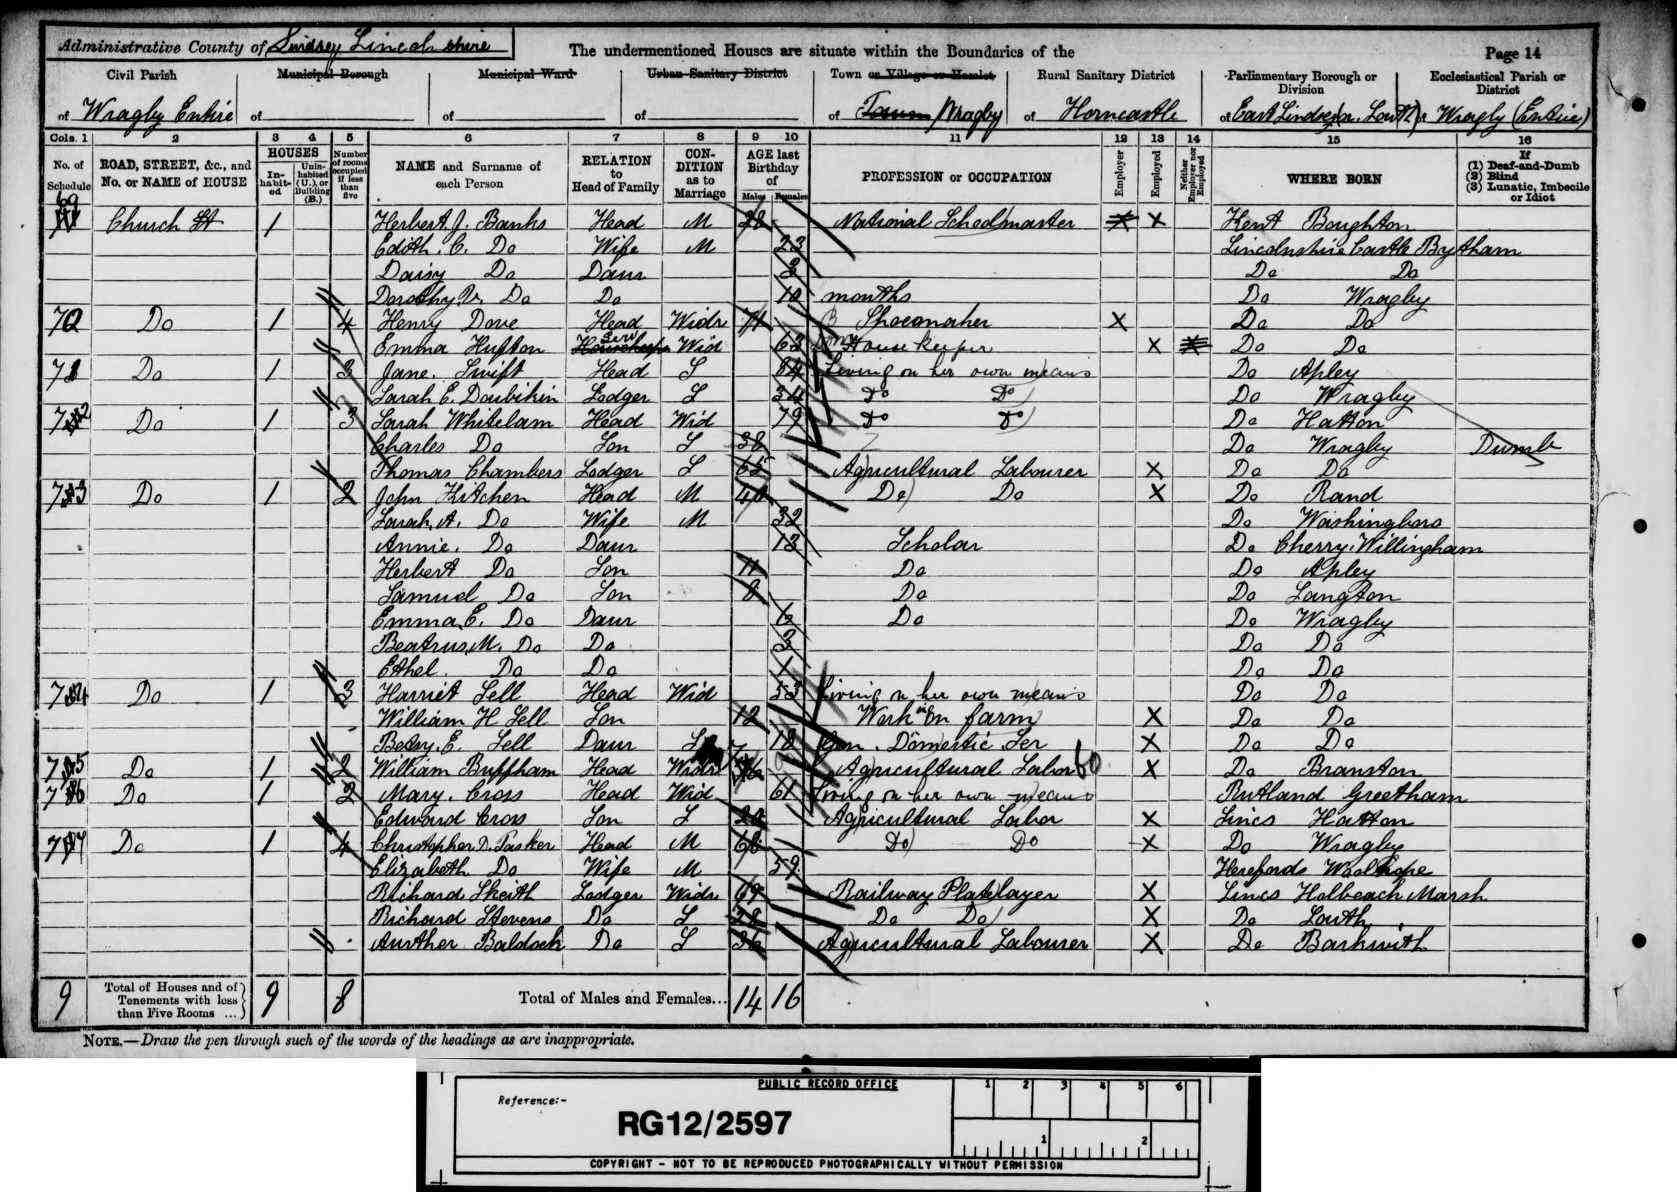 Administrative County of Lindsey Lincolnshire
The undermentioned Houses are situate within the Boundaries of the
Page 14
Civil Parish of Wragby Entire
Municipal Borough of
Municipal Ward of
Urban Sanitary District of
Town or Village or Hamlet of Town Wragby
Rural Sanitary District of Horncastle
Parliamentary Borough or Division of East Lindsey or Louth
Ecclesiastical Parish or District of Wragby (Entire)
Cols. 1 2 3 4 5 6 7 8 9 10 11 12 13 14 15 16
No. of Schedule
ROAD, STREET, &c., and No. or NAME of HOUSE
HOUSES
In-habit-ed
Unin-habited (U.), or Building (B.)
Number of rooms occupied if less than five
NAME and Surname of each Person
RELATION to Head of Family
CON-DITION as to Marriage
AGE last Birthday of
Males Females
PROFESSION or OCCUPATION
Employer
Employed
Neither Employer nor Employed
WHERE BORN
If (1) Deaf-and-Dumb (2) Blind (3) Lunatic, Imbecile or Idiot
69 Church St 1 Herbert J. Banks Head M 28 National Schoolmaster X Kent Boughton
Edith. C. Do Wife M 23 Lincolnshire Castle Bytham
Daisy Do Daur 2 Do Do
Dorothy Do Do 10 months Do Wragby
70 Do 1 4 Henry Dove Head Widr 71 Shoemaker X Do Do
Emma Hufton Serv Wid 62 House keeper X Do Do
71 Do 1 3 Jane. Swift Head S 84 Living on her own means Do Apley
Sarah E. Doubikin Lodger S 34 Do Do Do Wragby
72 Do 1 3 Sarah Whitelam Head Wid 79 Do Do Do Hatton
Charles Do Son S 38 Do Wragby Dumb
Thomas Chambers Lodger S 65 Agricultural Labourer X Do Do
73 Do 1 2 John Kitchen Head M 40 Do Do X Do Rand
Sarah. A. Do Wife M 32 Do Washingboro
Annie. Do Daur 13 Scholar Do Cherry Willingham
Herbert Do Son 11 Do Do Apley
Samuel Do Son 8 Do Do Langton
Emma E. Do Daur 6 Do Do Wragby
Beatrus M. Do Do 3 Do Do
Ethel. Do Do 1 Do Do
74 Do 1 3 Harriet Sell Head Wid 53 Living on her own means Do Do
William H Sell Son 12 Work on farm X Do Do
Betsy. E. Sell Daur S 18 Gen. Domestic Ser X Do Do
75 Do 1 2 William Buffham Head Widr Agricultural Labor X Do Branston
76 Do 1 2 Mary. Cross Head Wid 61 Living on her own means Rutland Greetham
Edward Cross Son S Agricultural Labor X Lincs Hatton
77 Do 1 4 Christopher D. Tasker Head M 68 Do Do X Do Wragby
Elizabeth Do Wife M 59 Herefords Woolhope
Richard Skeith Lodger Widr 49 Railway Platelayer X Lincs Holbeach Marsh
Richard Stevens Do S 28 Do Do X Do Louth
Aurther Baldock Do S 36 Agricultural Labourer X Do Barkwith
9 Total of Houses and of Tenements with less than Five Rooms ... 9 8 Total of Males and Females... 14 16
NOTE.—Draw the pen through such of the words of the headings as are inappropriate.
PUBLIC RECORD OFFICE
1 2 3 4 5 6
Reference:-
RG12/2597
1 2
COPYRIGHT - NOT TO BE REPRODUCED PHOTOGRAPHICALLY WITHOUT PERMISSION